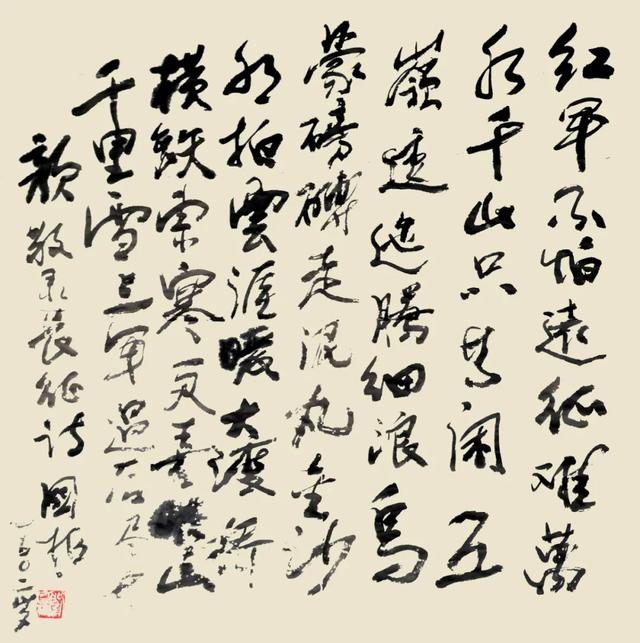 红军不怕遠征难萬
水千山只等闲五
嶺逶迤腾细浪烏
蒙磅礴走泥丸金沙
水拍雲涯暖大渡桥
横鉄索寒更喜岷山
千里雪三军过后尽开
颜 敬录长征诗 國
百〇二岁